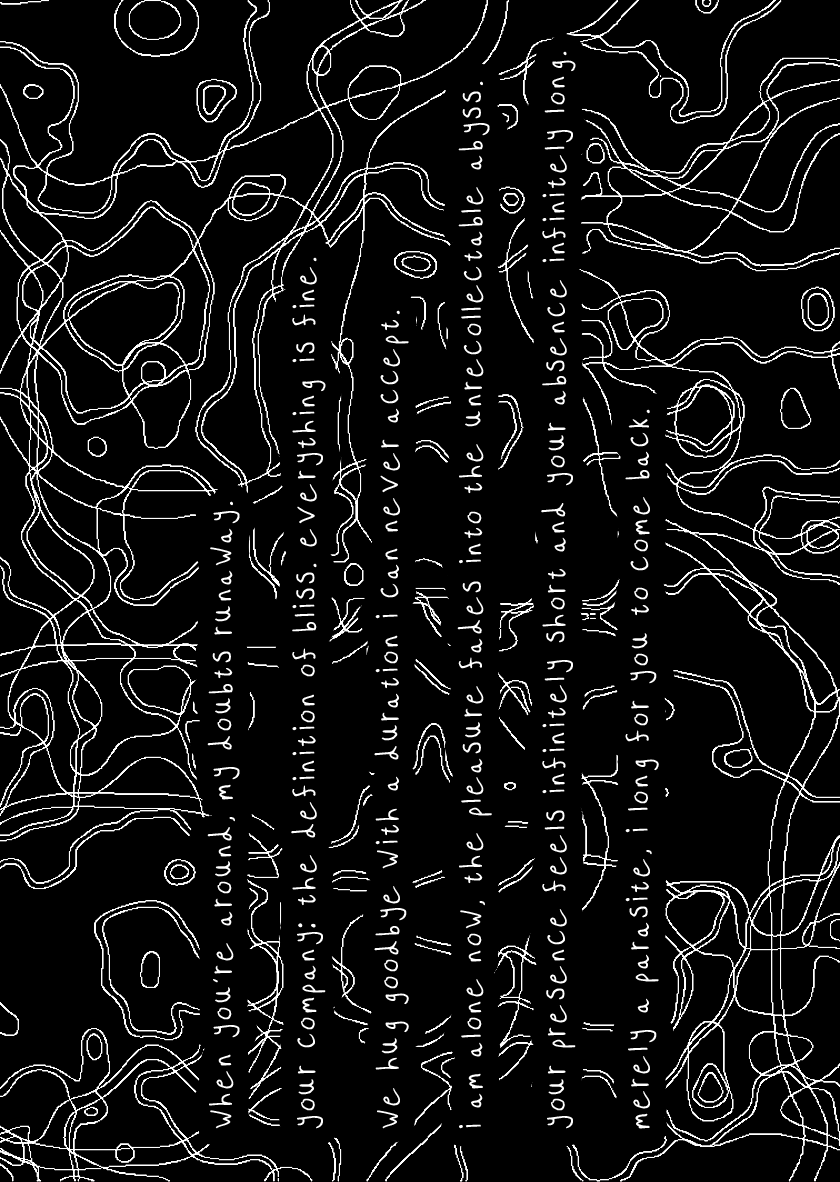 when you're around, my doubts runaway.
your company: the definition of bliss. everything is fine.
we hug goodbye with a duration i can never accept.
i am alone now, the pleasure fades into the unrecollectable abyss.
your presence feels infinitely short and your absence infinitely long.
merely a parasite, i long for you to come back.